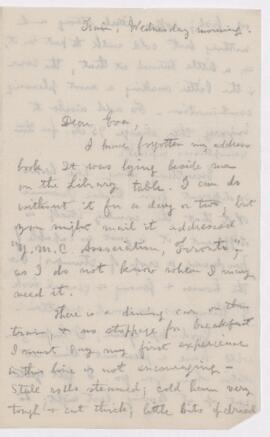 Train, Wednesday morning.
Dear Eva,
I have forgotten my address
book. It was lying beside me
on the Library table. I can do
without it for a day or two, but
you might mail it addressed
"Y.M.C. Association, Toronto",
as I do not know when I may
need it.
There is a dining car on the
train, & no stoppage for breakfast
I must say my first experience
in this line is not encouraging –
Stale rolls steamed; cold ham very
tough & cut thick; little bits of dried